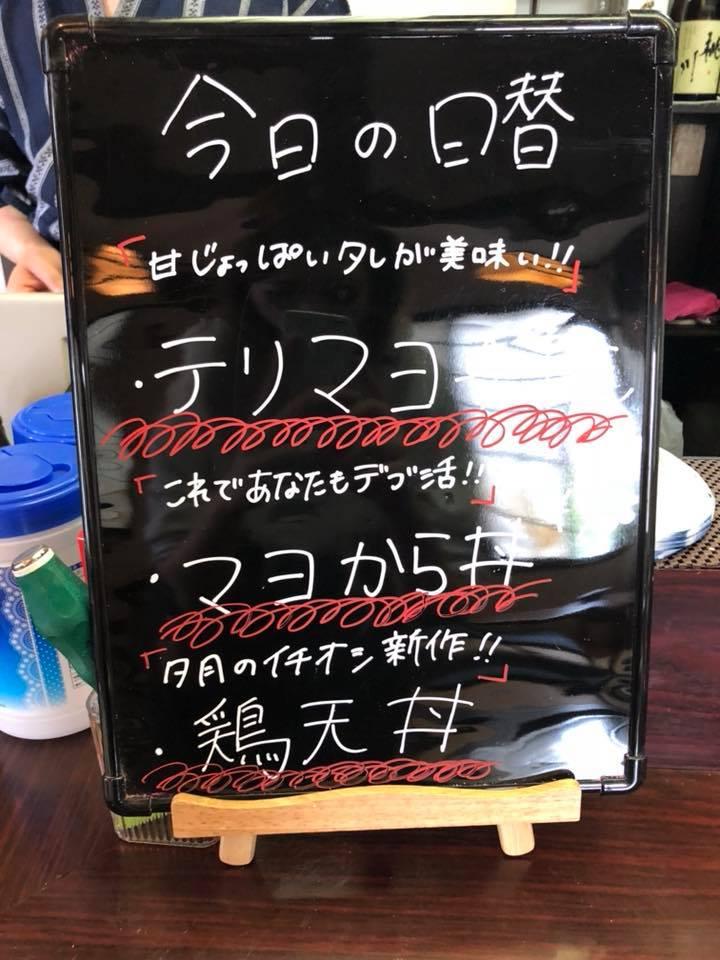 今日の日替
「甘じょっぱいタレが美味い!!」
・テリマヨ
「これであなたもデブ活!!」
・マヨから丼
「夕月のイチオシ新作!!」
・鶏天丼